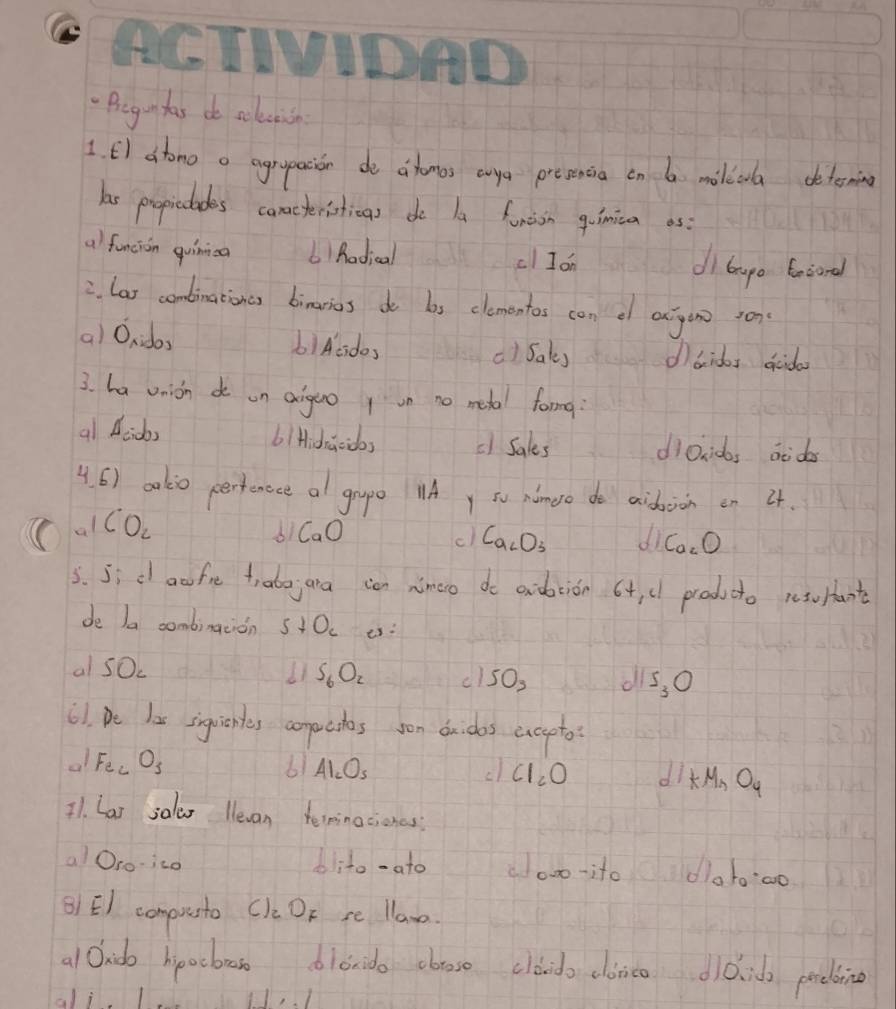 ACTIVIDAD
• Preguntas de selección:
1. El átomo o agrupación de átomos cuya presencia en la molécula determina
las propiedades características de la función química es:
a) función química b) Radical c) Ión d) Grupo
2. Las combinaciones binarias de los elementos con el oxígeno son:
a) Óxidos b) Ácidos c) Sales d) óxidos ácidos
3. La unión de un oxígeno y un no metal forma:
a) Ácidos b) Hidrácidos c) Sales d) Oxidos ácidos
4. El calcio pertenece al grupo IIA y su número de oxidación en 2+.
a) CO₂ b) CaO c) Ca₂O₃ d) Ca₂O
5. Si el azufre trabajara con número de oxidación 6+, el producto resultante
de la combinación S+O₂ es:
a) SO₂ b) S₆O₂ c) SO₃ d) S₃O
6). De los siguientes compuestos son óxidos excepto:
a) Fe₂O₃ b) Al₂O₃ c) Cl₂O d) KMnO₄
7). Las sales llevan terminaciones:
a) Oso-ico b) ito-ato c) oso-ito
8) El compuesto Cl₂O₇ se llama.
a) Óxido hipocloroso b) óxido cloroso c) óxido clórico d) Óxido perclórico